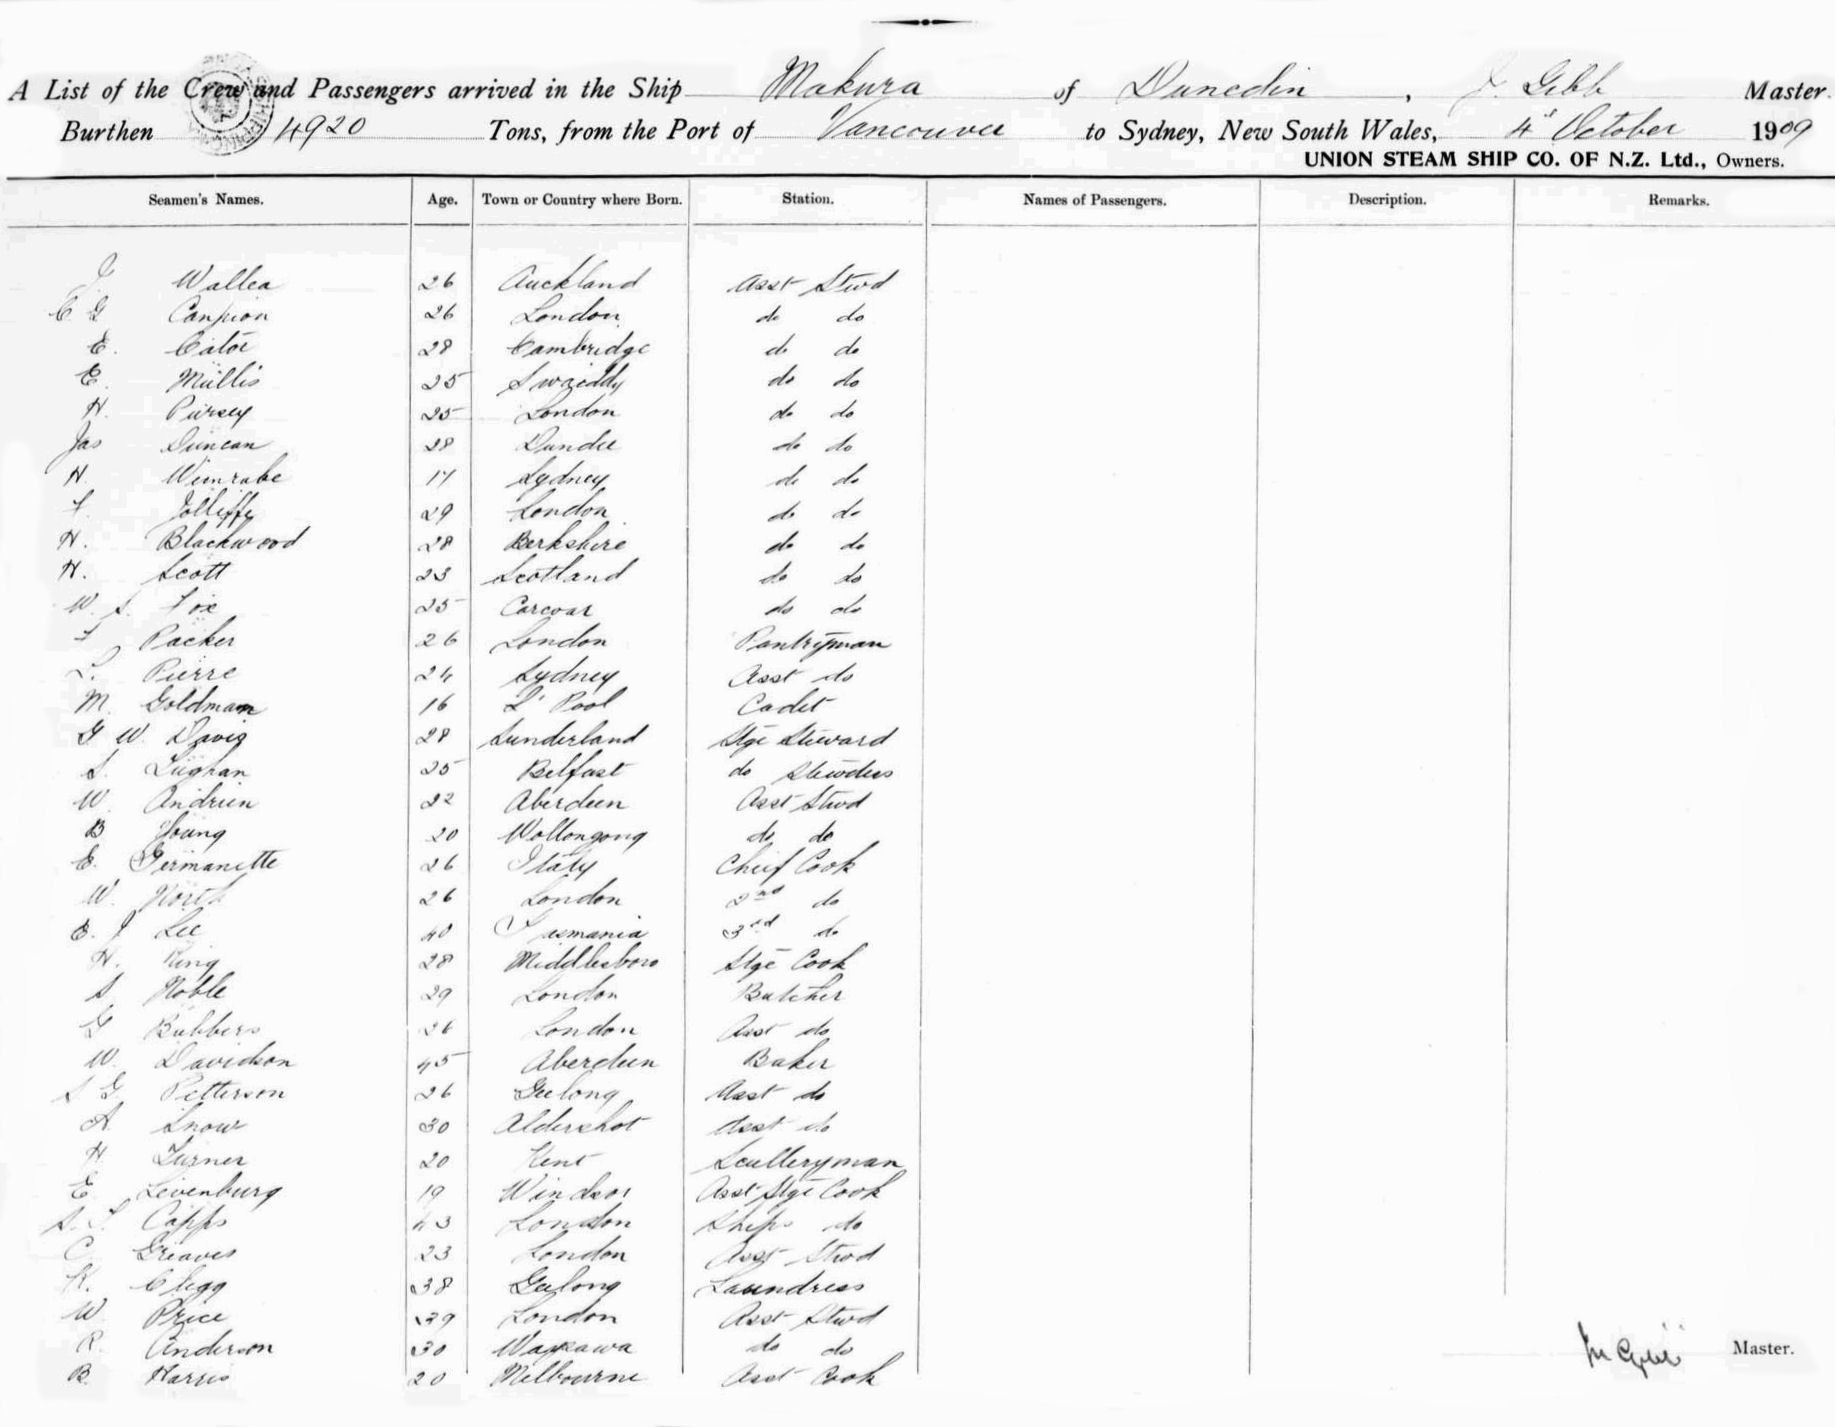 A List of the Crew and Passengers arrived in the Ship Makura of Dunedin, J. Gibb Master.
Burthen 4920 Tons, from the Port of Vancouver to Sydney, New South Wales, 4" October 1909
UNION STEAM SHIP CO. OF N.Z. Ltd., Owners.
Seamen's Names. Age. Town or Country where Born. Station. Names of Passengers. Description. Remarks.
26 Auckland Asst Stwd
C G 26 London do do
E. Cator 28 Cambridge do do
E. Mullis 25 do do
H. Pursey 25 London do do
Jas Duncan 28 Dundee do do
H. Weinrabe 17 Sydney do do
F. Jolliffe 29 London do do
H. Blackwood 28 Berkshire do do
H. Scott 23 Scotland do do
W. S. Fox 25 Carcoar do do
F Packer 26 London Pantryman
L. Pierre 24 Sydney Asst do
M. Goldman 16 L'Pool Cadet
G W. Davis 28 Sunderland Stge Steward
S. 25 Belfast do Stewdess
W. Andrien 22 Aberdeen Asst Stwd
B Young 20 Wollongong do do
E. Germanette 26 Italy Cheif Cook
W. North 26 London 2nd do
E. J Lee 40 Tasmania 3rd do
H. King 28 Middlesboro Stge Cook
S Noble 29 London Butcher
G Bubbers 26 London Asst do
W. Davidson 45 Aberdeen Baker
S G Petterson 26 Geelong Asst do
A. Snow 30 Aldershot Asst do
H Turner 20 Kent Sculleryman
E. Levenburg 19 Windsor Asst Stge Cook
Capps 43 London Ships do
C Greaves 23 London Asst Stwd
K. Clegg 38 Geelong Laundress
W. Price 39 London Asst Stwd
R. Anderson 30 do do
B. Harris 20 Melbourne Asst Cook
Master.